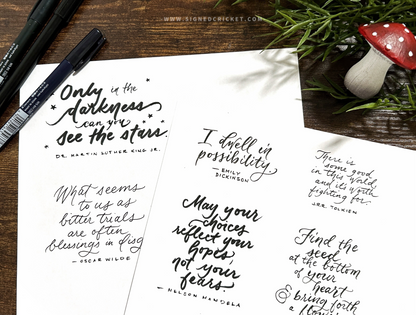 WWW.SIGNEDCRICKET.COM
Only in the
darkness
can you
see the stars.
DR. MARTIN LUTHER KING JR.
What seems
to us as
bitter trials
are often
blessings in disg
— OSCAR WILDE
I dwell in
possibility
— EMILY
DICKINSON
May your
choices
reflect your
hopes,
not your
fears.
— NELSON MANDELA
There is
some good
in this world,
and it's worth
fighting for.
JRR TOLKIEN
Find the
seed
at the bottom
of your
heart
& bring forth
a flower